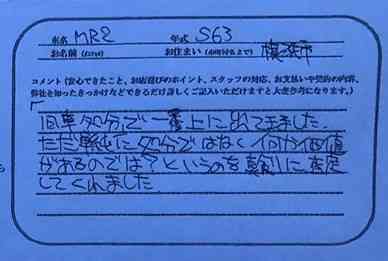 車名 MR2 年式 S63
お名前(イニシャル) お住まい(市町村名まで) 横浜市
コメント(安心できたこと、お店選びのポイント、スタッフの対応、お支払いや契約の内容、
弊社を知ったきっかけなどできるだけ詳しくご記入いただけますと大変参考になります。)
「
旧車処分で一番上に出てきました。
ただ単純に処分ではなく何か価値
があるのでは?というのを真剣に査定
してくれました